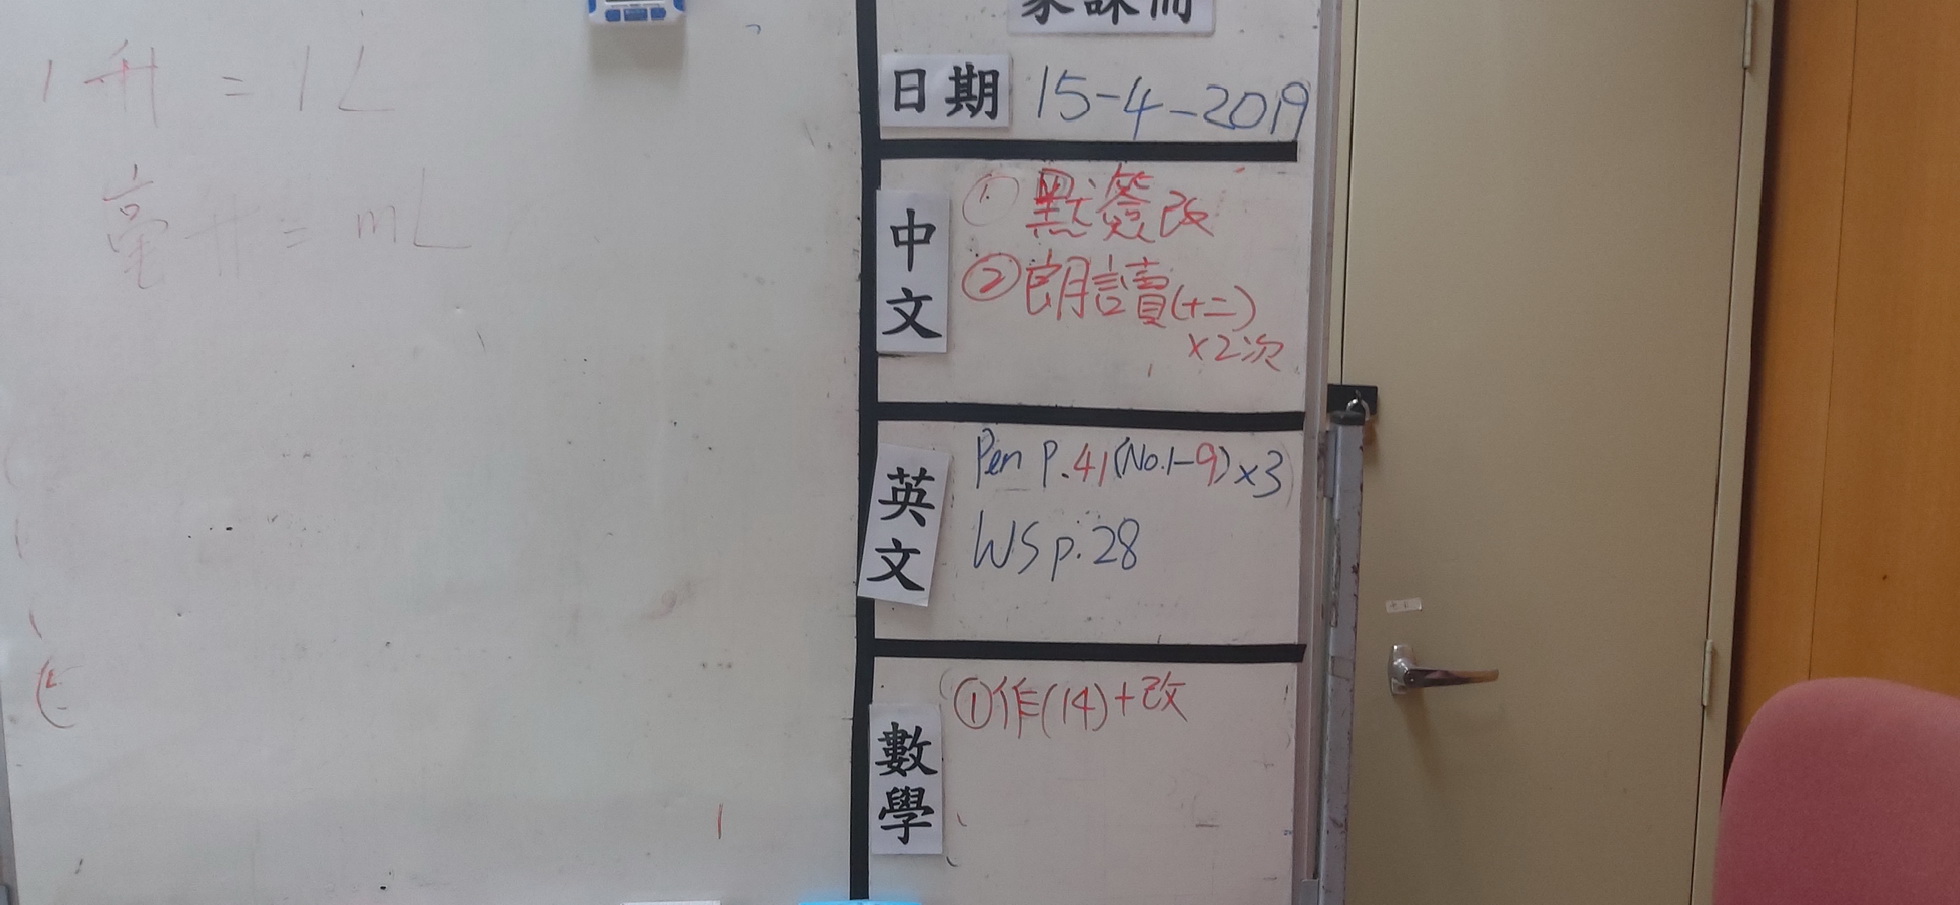 1升 = 1L
毫升 = mL
家課冊
日期 15-4-2019
中文
① 默簽改
② 朗讀(十二)
×2次
英文
Pen P.41(No.1-9)×3
WS p.28
數學
①作(14)+改